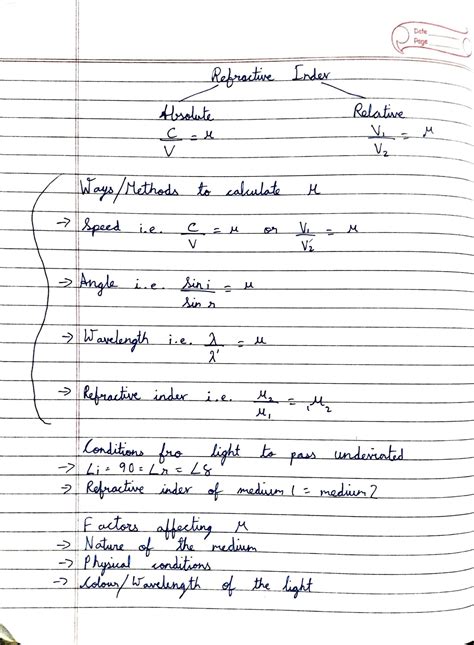 Date
Page
Refractive Index
Absolute Relative
C/V = μ V₁/V₂ = μ
Ways/Methods to calculate μ
→ Speed i.e. c/v = μ or V₁/V₂ = μ
→ Angle i.e. Sin i/Sin r = μ
→ Wavelength i.e. λ/λ' = μ
→ Refractive index i.e. μ₂/μ₁ = ₁μ₂
Conditions fro light to pass undeviated
→ ∠i = 90 = ∠r = ∠δ
→ Refractive index of medium 1 = medium 2
Factors affecting μ
→ Nature of the medium
→ Physical conditions
→ Colour/Wavelength of the light